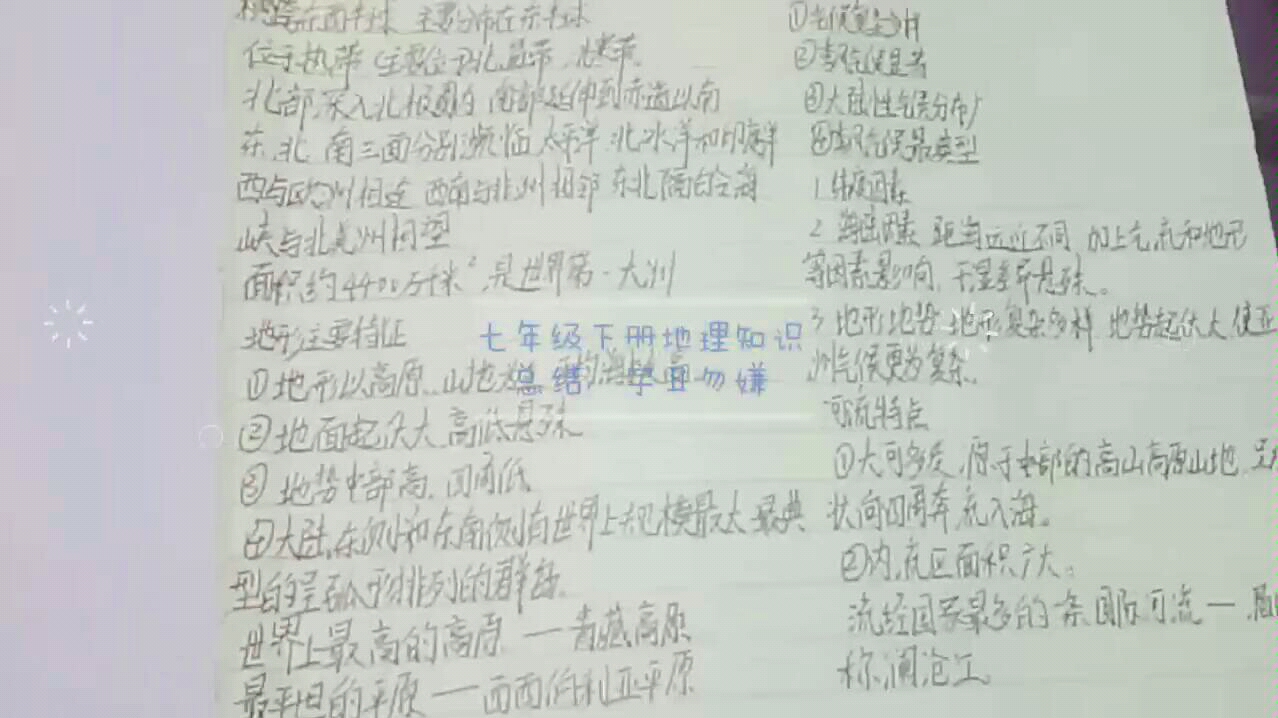 跨东西半球 主要分布在东半球
位于热带 主要位于北温带 北寒带
北部深入北极圈内 南部延伸到赤道以南
东、北、南三面分别濒临太平洋、北冰洋和印度洋
西与欧洲相连 西南与非洲相邻 东北隔白令海
峡与北美洲相望
面积约4400万千米²,是世界第一大洲
地形主要特征
①地形以高原、山地为
②地面起伏大 高低悬殊
③地势中部高,四周低
④大陆东侧和东南侧有世界上规模最大 最典
型的呈弧形排列的群岛
世界上最高的高原——青藏高原
最平坦的平原——西西伯利亚平原
七年级下册地理知识
总结,字丑勿嫌
①气候复杂多样
②季风气候显著
③大陆性气候分布广
④气候类型
1.纬度因素
2.海陆因素 距海远近不同 加上气流和地形
等因素影响,干湿差异悬殊。
3.地形地势 地形复杂多样 地势起伏大,使亚
洲气候更为复杂。
河流特点
①大河多发源于中部的高山高原山地,呈
状向四周奔流入海。
②内流区面积广大。
流经国家最多的一条国际河流——
称澜沧江